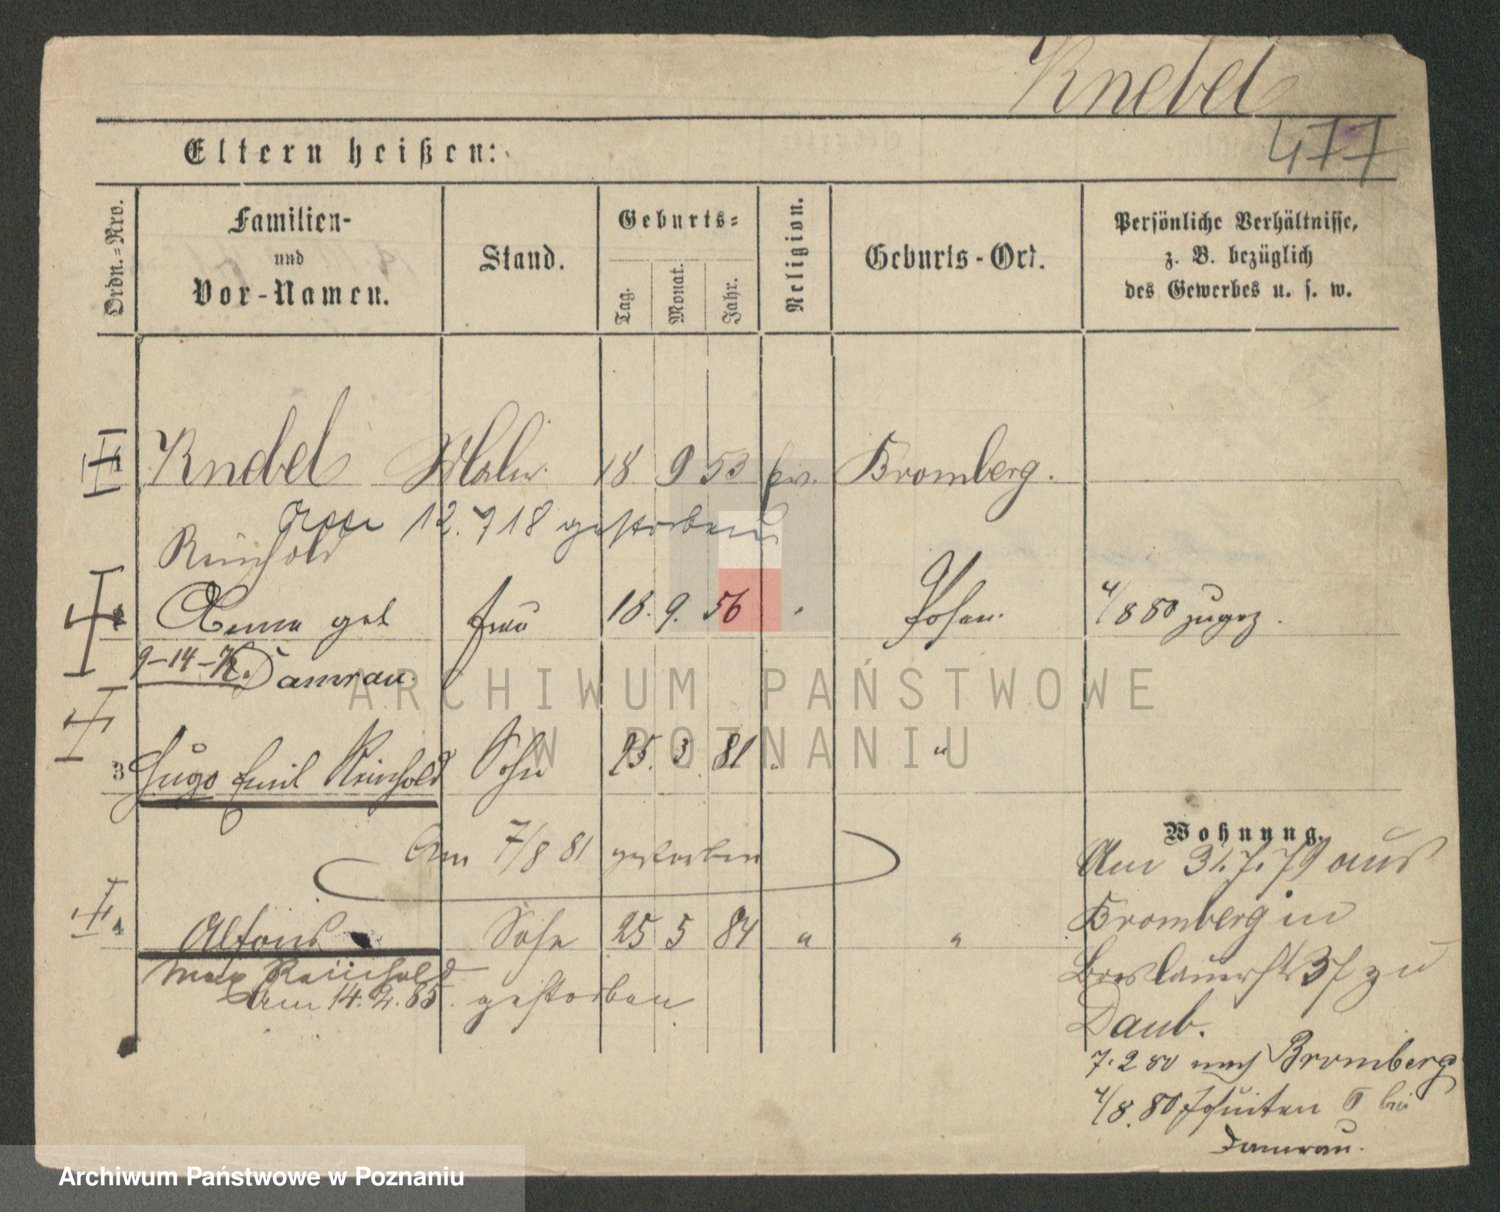 Knebel
477
Eltern heißen:
Ordn.=Nro.
Familien-
und
Vor-Namen.
Stand.
Geburts=
Tag.
Monat.
Jahr.
Religion.
Geburts-Ort.
Persönliche Verhältnisse,
z. B. bezüglich
des Gewerbes u. s. w.
Knebel Maler 18 9 53 ev. Bromberg.
12. 7 18 gestorben
Reinhold
2 Anna geb Frau 18. 9. 56 " Posen. 4/8 80 zugez.
9-14- Damrau.
3 Hugo Emil Reinhold Sohn 25. 3. 81 "
Am 7/8 81 gestorben
4 Alfons Sohn 25 5 84 " "
Max Reinhold
am 14. 2. 85. gestorben
Wohnung.
Am 31. 7. 79 aus
Bromberg in
Breslauerst 37 zu
Daub.
7. 2 80 nach Bromberg
4/8. 80 Jesuiten bei
Damrau.
ARCHIWUM PAŃSTWOWE
W POZNANIU
Archiwum Państwowe w Poznaniu